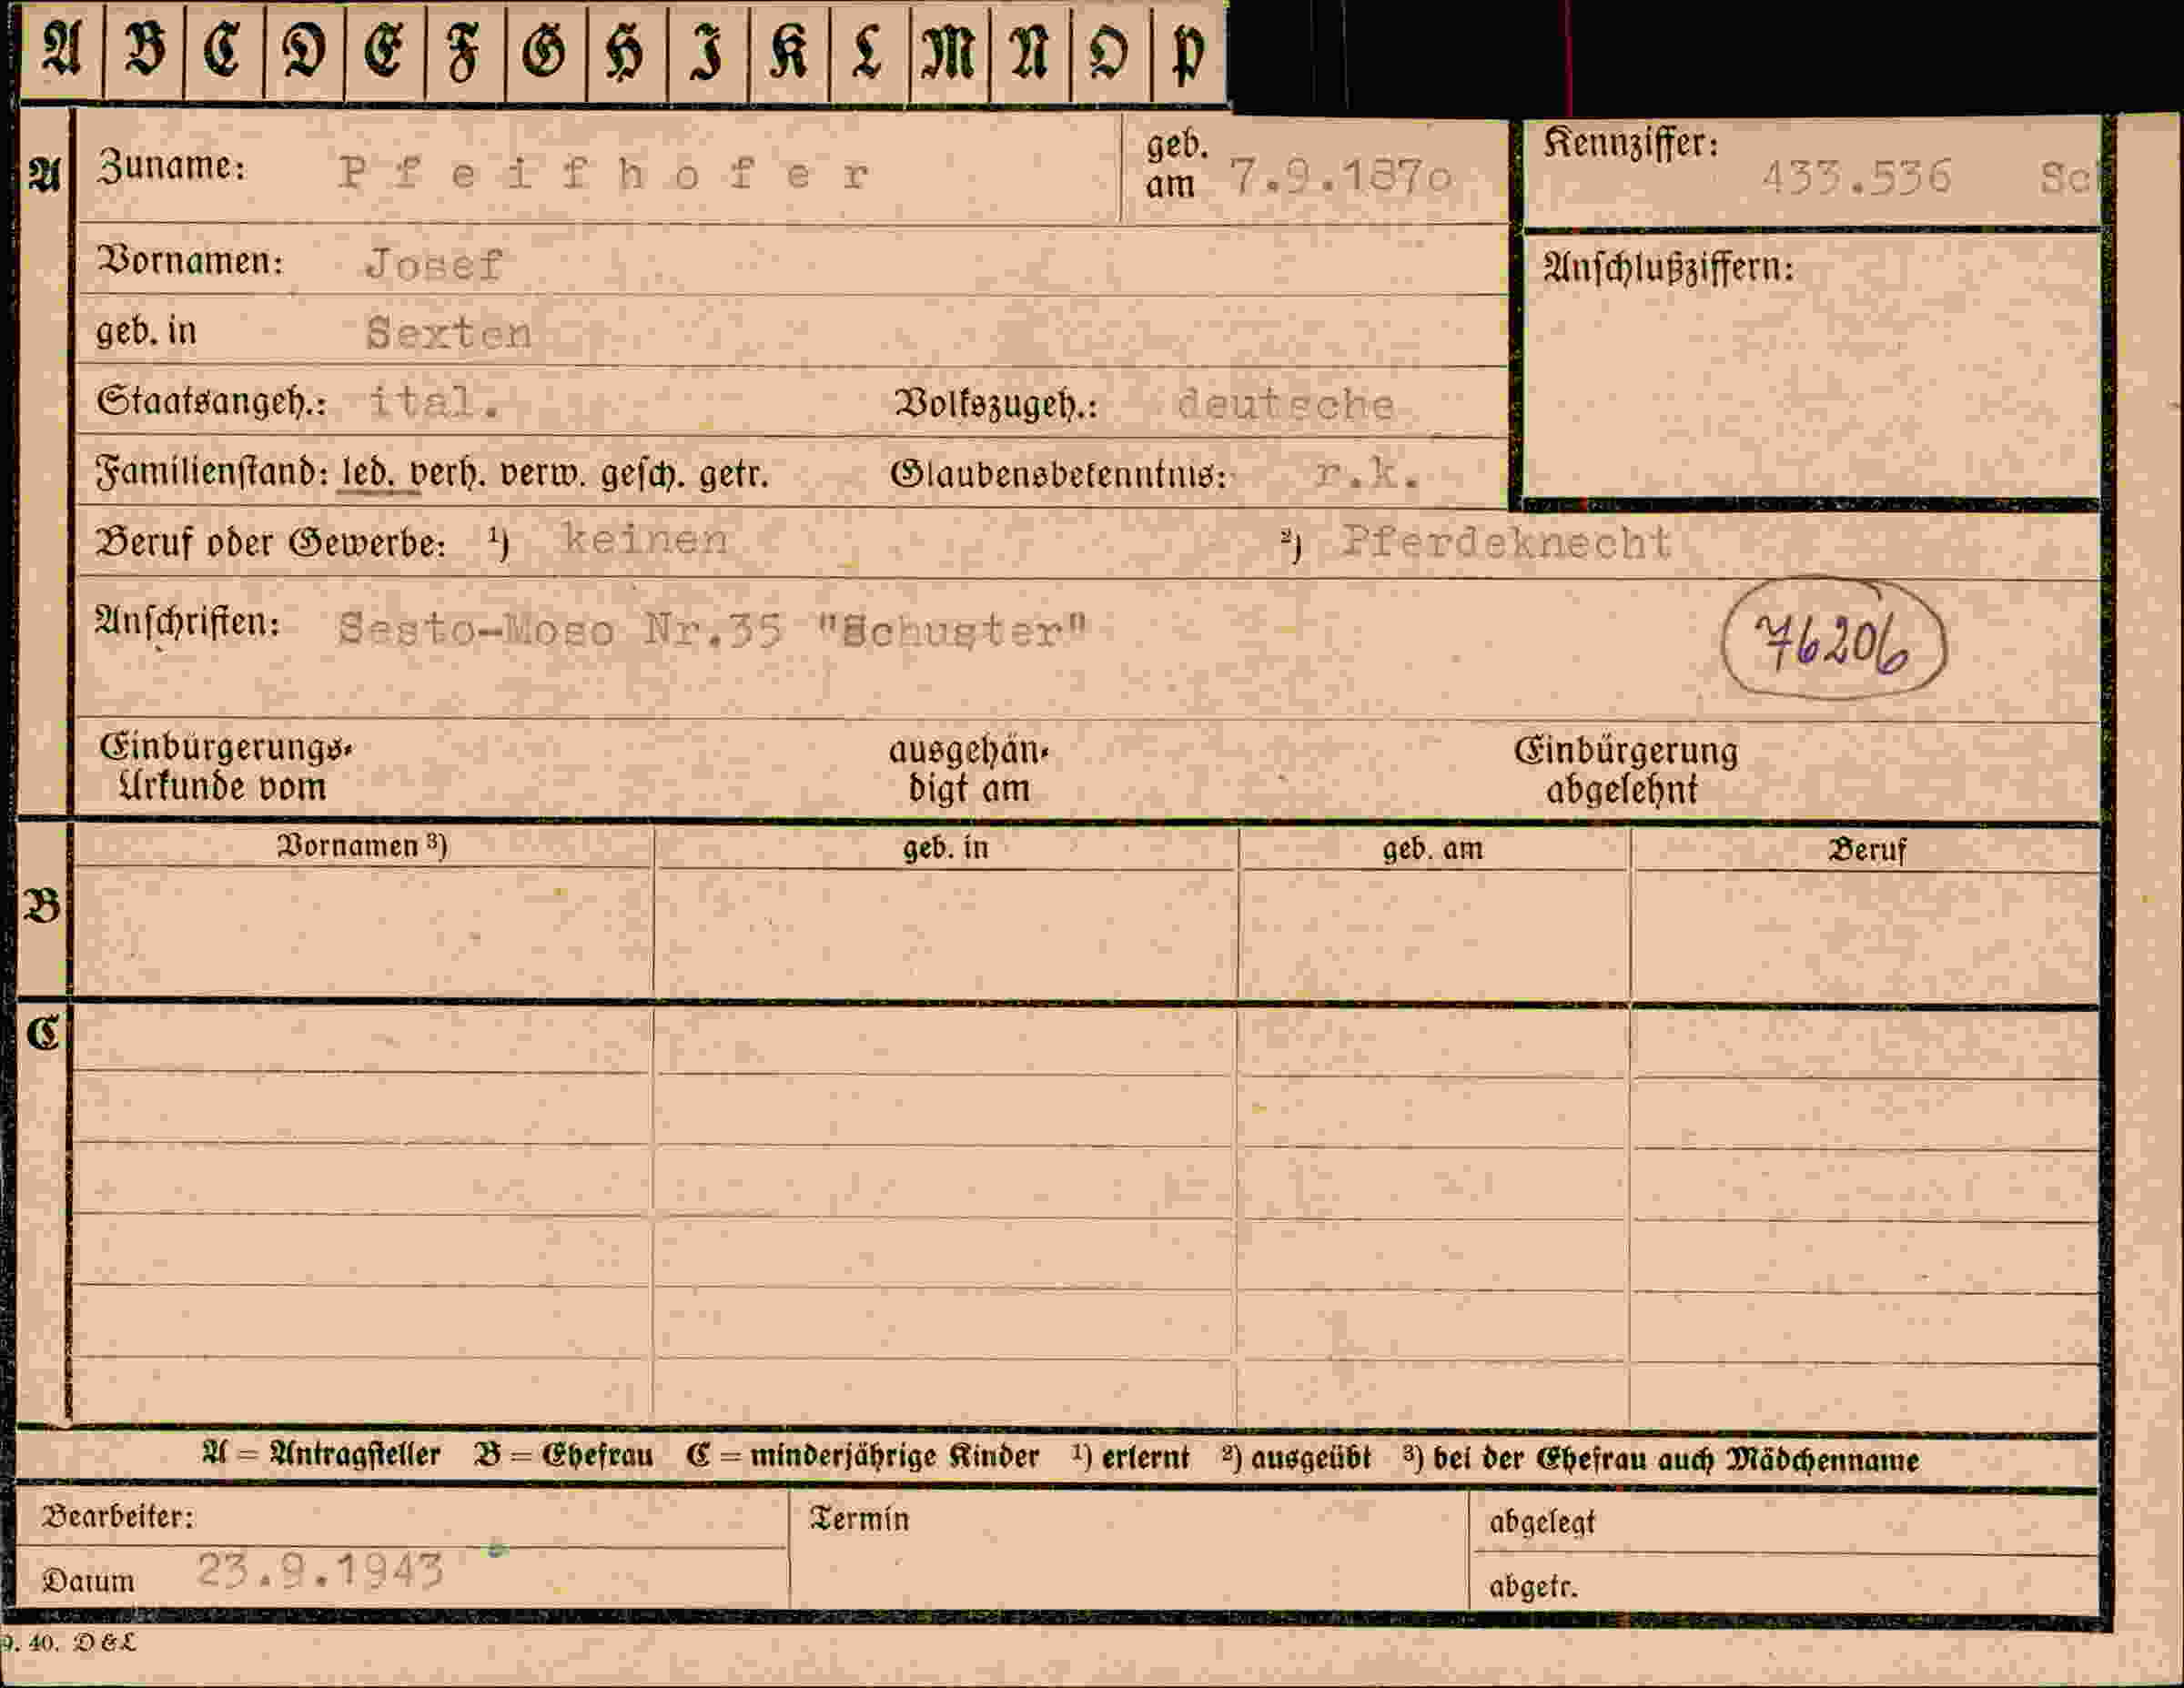 A B C D E F G H I K L M N O P
A Zuname: Pfeifhofer geb. am 7.9.1870 Kennziffer: 433.536 Sch
Vornamen: Josef Anschlußziffern:
geb. in Sexten
Staatsangeh.: ital. Volkszugeh.: deutsche
Familienstand: led. verh. verw. gesch. getr. Glaubensbekenntnis: r.k.
Beruf oder Gewerbe: 1) keinen 2) Pferdeknecht
Anschriften: Sesto-Moso Nr.35 "Schuster" 76206
Einbürgerungs-Urkunde vom ausgehändigt am Einbürgerung abgelehnt
Vornamen 3) geb. in geb. am Beruf
B
C
A = Antragsteller B = Ehefrau C = minderjährige Kinder 1) erlernt 2) ausgeübt 3) bei der Ehefrau auch Mädchenname
Bearbeiter: Termin abgelegt
Datum 23.9.1943 abgetr.
9. 40. D & L